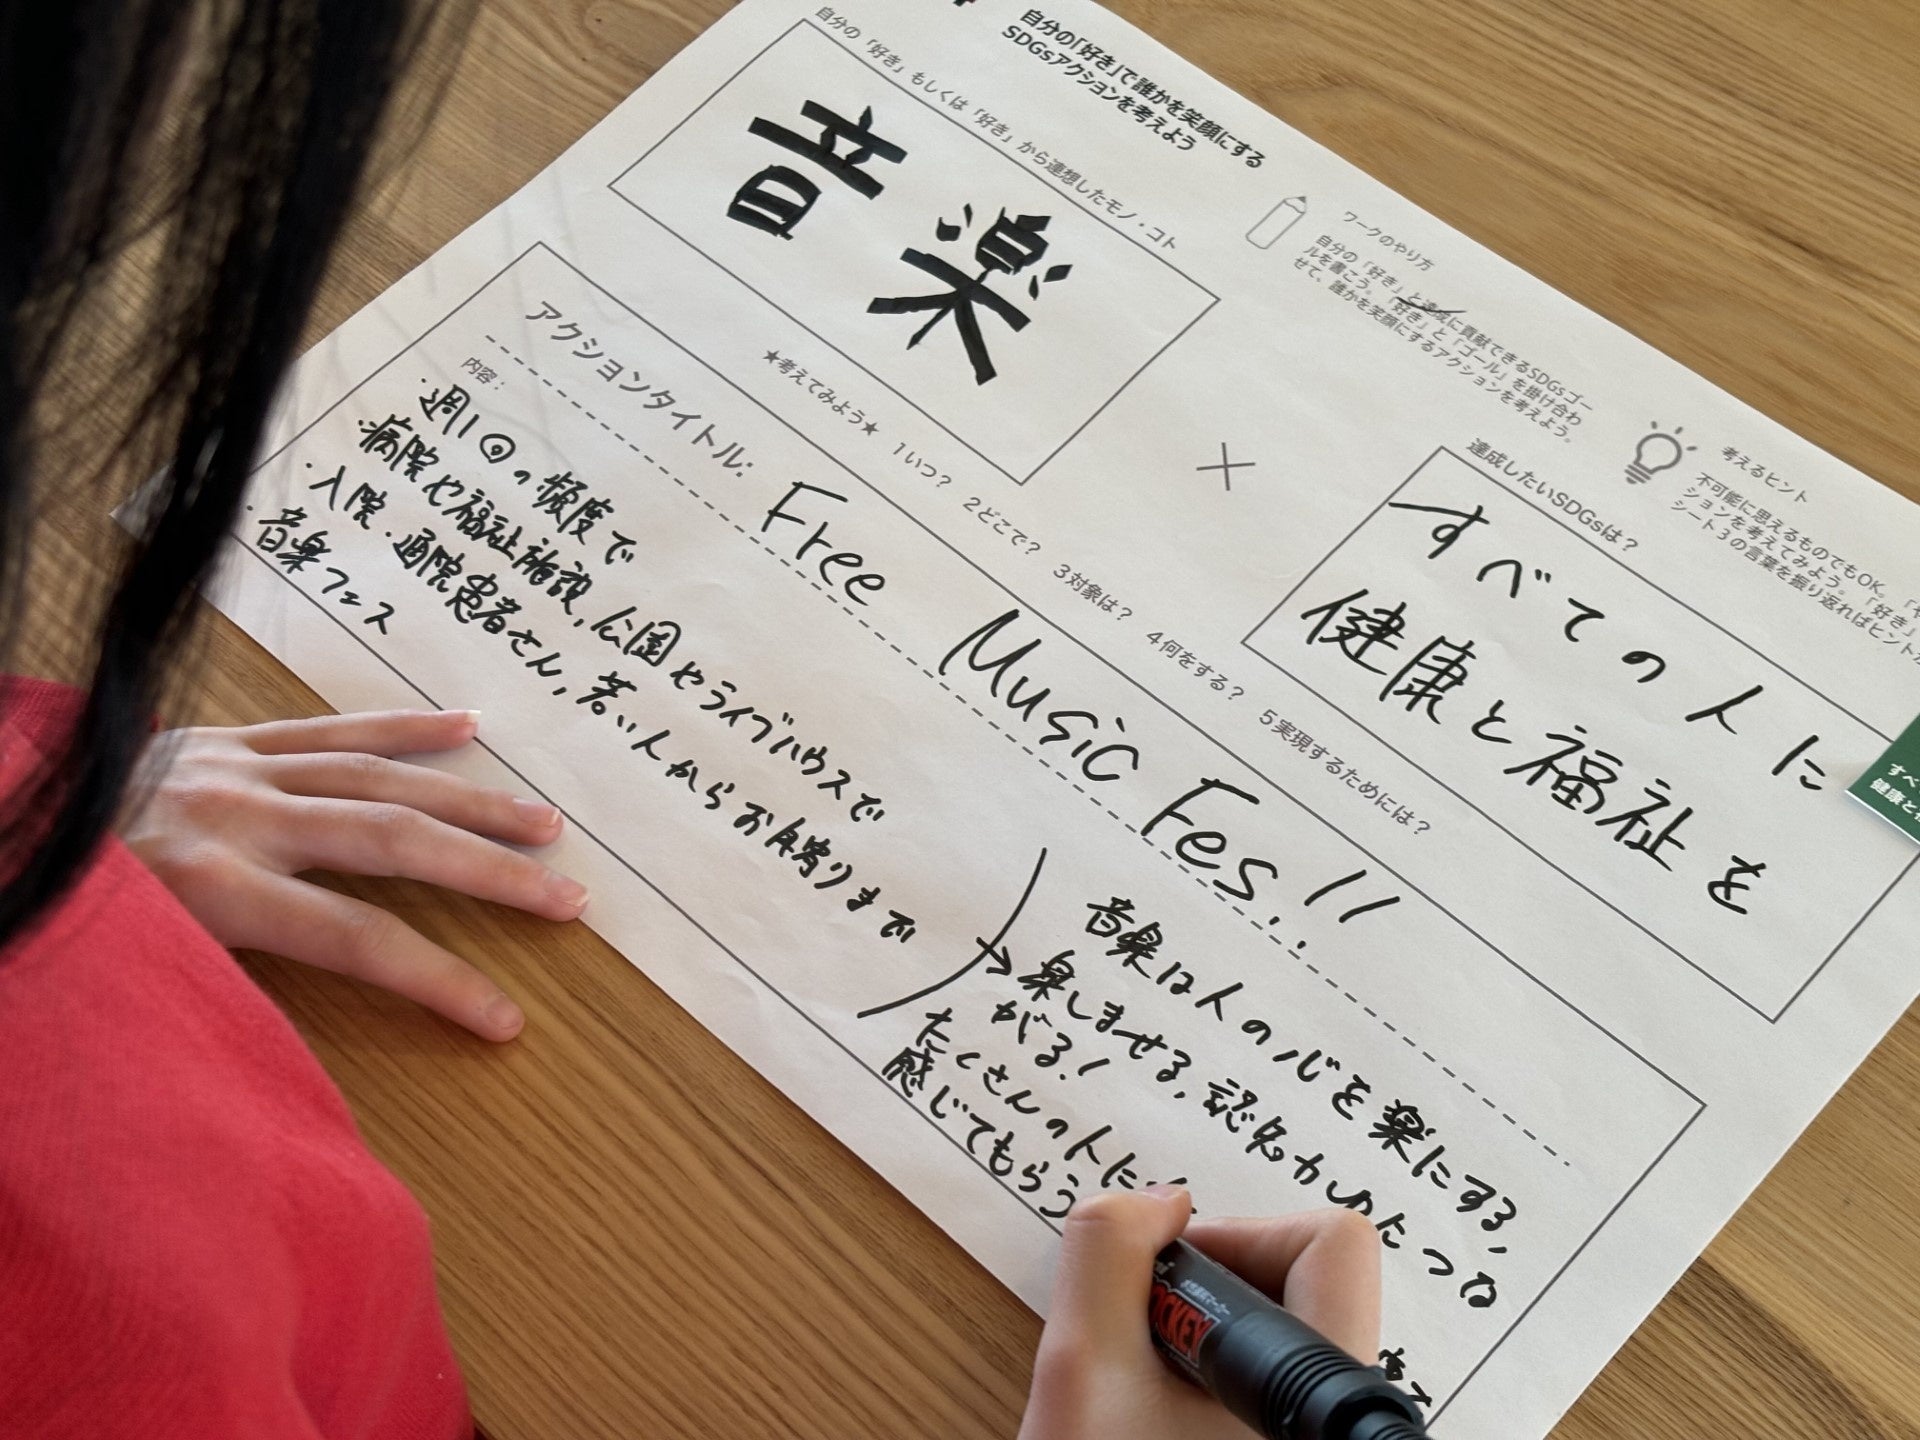 自分の「好き」で誰かを笑顔にする
SDGsアクションを考えよう
自分の「好き」もしくは「好き」から連想したモノ・コト
音楽
ワークのやり方
自分の「好き」と達成に貢献できるSDGsゴー
ルを書こう。「好き」と「ゴール」を掛け合わ
せて、誰かを笑顔にするアクションを考えよう。
考えるヒント
不可能に思えるものでもOK。
ションを考えてみよう。「好き」
シート3の言葉を振り返ればヒント
×
達成したいSDGsは?
すべての人に
健康と福祉を
すべ
健康と
★考えてみよう★ 1いつ? 2どこで? 3対象は? 4何をする? 5実現するためには?
アクションタイトル: Free Music Fes.!!
内容:
・週1回の頻度で
・病院や福祉施設,公園やライブハウスで
・入院・通院患者さん,若い人からお年寄りまで
・音楽フェス
→
音楽は人の心を楽にする,
楽しませる,認知力UPにつな
がる!
たくさんの人に
感じてもらう